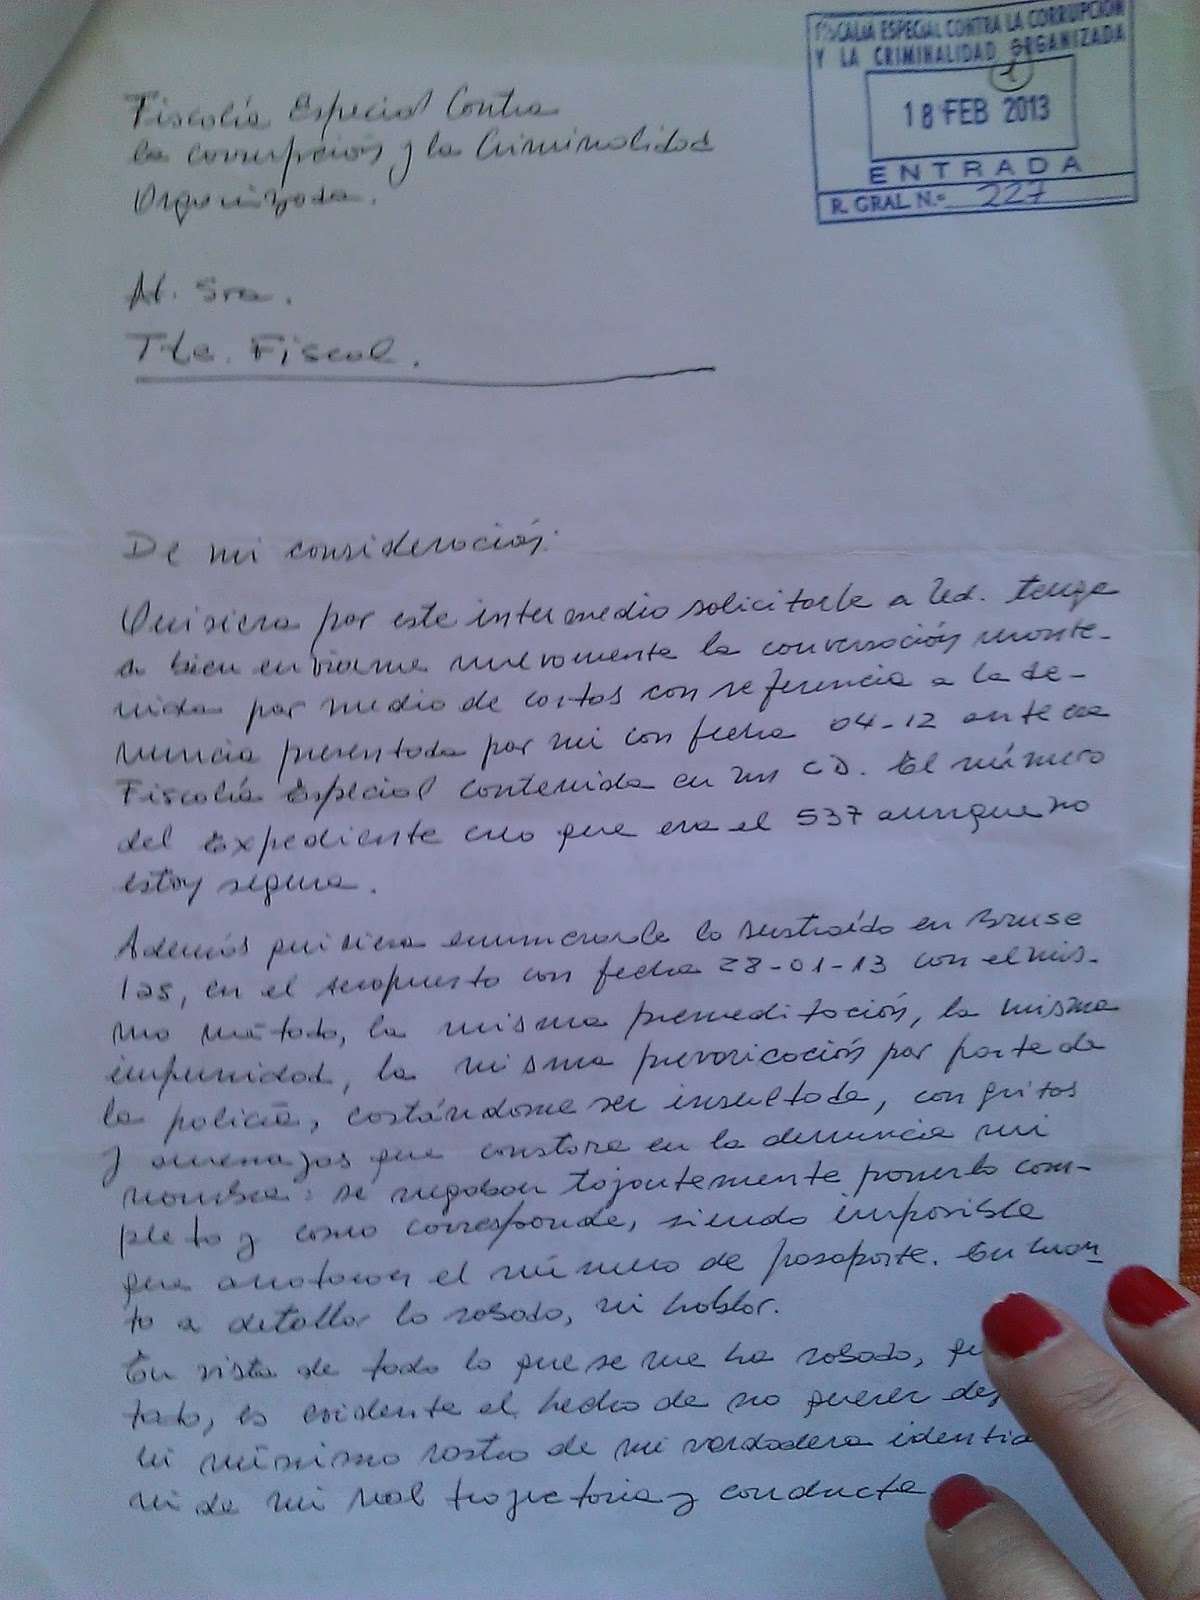 FISCALIA ESPECIAL CONTRA LA CORRUPCION
Y LA CRIMINALIDAD ORGANIZADA
1
18 FEB 2013
ENTRADA
R. GRAL N.- 227
Fiscalía Especial Contra
la corrupción y la Criminalidad
Organizada.
At. Sra.
Tte. Fiscal.
De mi consideración:
Quisiera por este intermedio solicitarle a Ud. tenga
a bien enviarme nuevamente la conversación mante-
nida por medio de cartas con referencia a la de-
nuncia presentada por mi con fecha 04-12 ante esa
Fiscalía Especial contenida en un CD. El número
del Expediente creo que era el 537 aunque no
estoy segura.
Además quisiera enumerarle lo sustraído en Bruse
las, en el aeropuerto con fecha 28-01-13 con el mis-
mo método, la misma premeditación, la misma
impunidad, la misma prevaricación por parte de
la policía, costándome ser insultada, con gritos
y amenazas que constara en la denuncia mi
nombre: se negaban tajantemente ponerlo com-
pleto y como corresponde, siendo imposible
que anotaran el número de pasaporte. En cuan
to a detallar lo robado, ni hablar.
En vista de todo lo que se me ha robado,
es evidente el hecho de no querer
ni mínimo rastro de mi verdadera
ni de mi real trayectoria y conducta